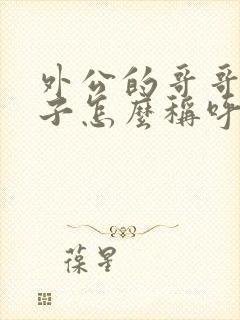 外公的哥哥
子怎麼稱呼
葆星